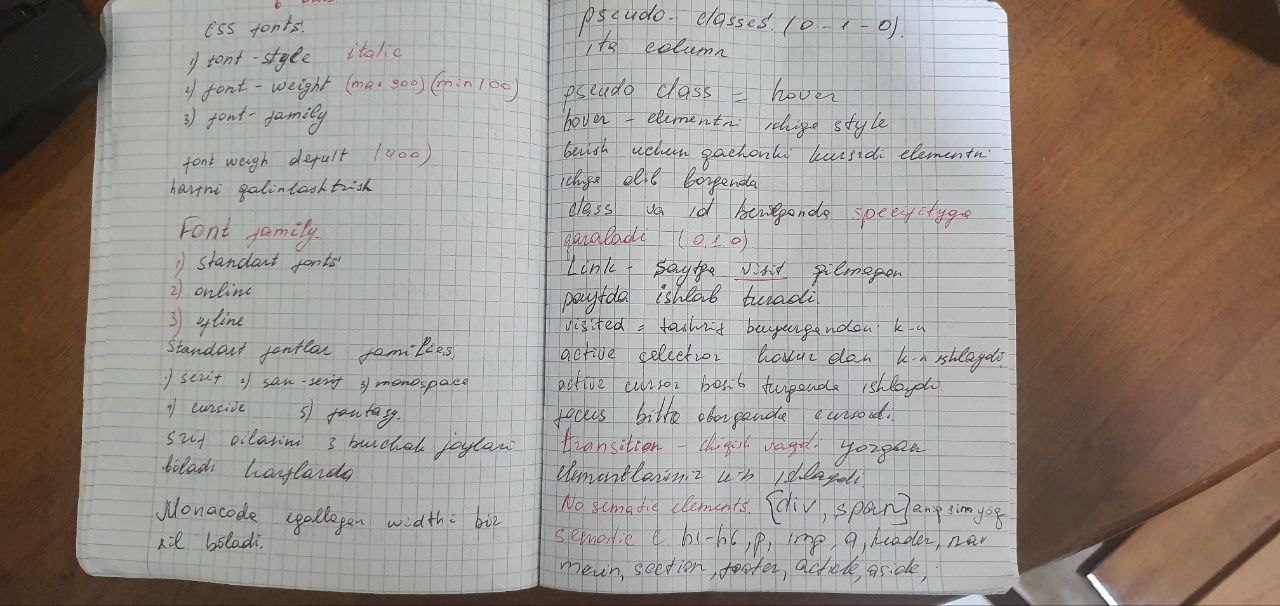 CSS fonts.
1) font-style italic
2) font-weight (max 900) (min 100)
3) font-family
font weigh defult (400)
harfni qalinlashtrish
Font family
1) standart fonts
2) online
3) ofline
Standart fontlar families.
1) serif 2) san-serif 3) monospace
4) cursive 5) fantasy.
Srif oilasini 3 burchak joylari
biladi harflarda
Monacode egallagan widthi bir
xil bòladi.
pseudo-classes. (0-1-0).
ita column
pseudo class = hover
hover - elementni ichiga style
berish uchun qachonki kursrdi elementni
ichiga olib borganda
class va id berilganda specifityga
qaraladi (0.1.0)
Link - saytga visit qilmagan
paytda ishlab turadi.
visited = tashrif buyurgandan k-n
active selectror hovur dan k-n ishlaydi
active cursor bosib turganda ishlaydi
focus bitta oborganda cursordi.
transition - chiqish vaqdi yozgan
elementlarimiz ishlaydi
No sematic elements. {div, span} aniq sim yòq
sematic e h1-h6, p, img, a, header, nav
mein, section, footer, acticle, aside,